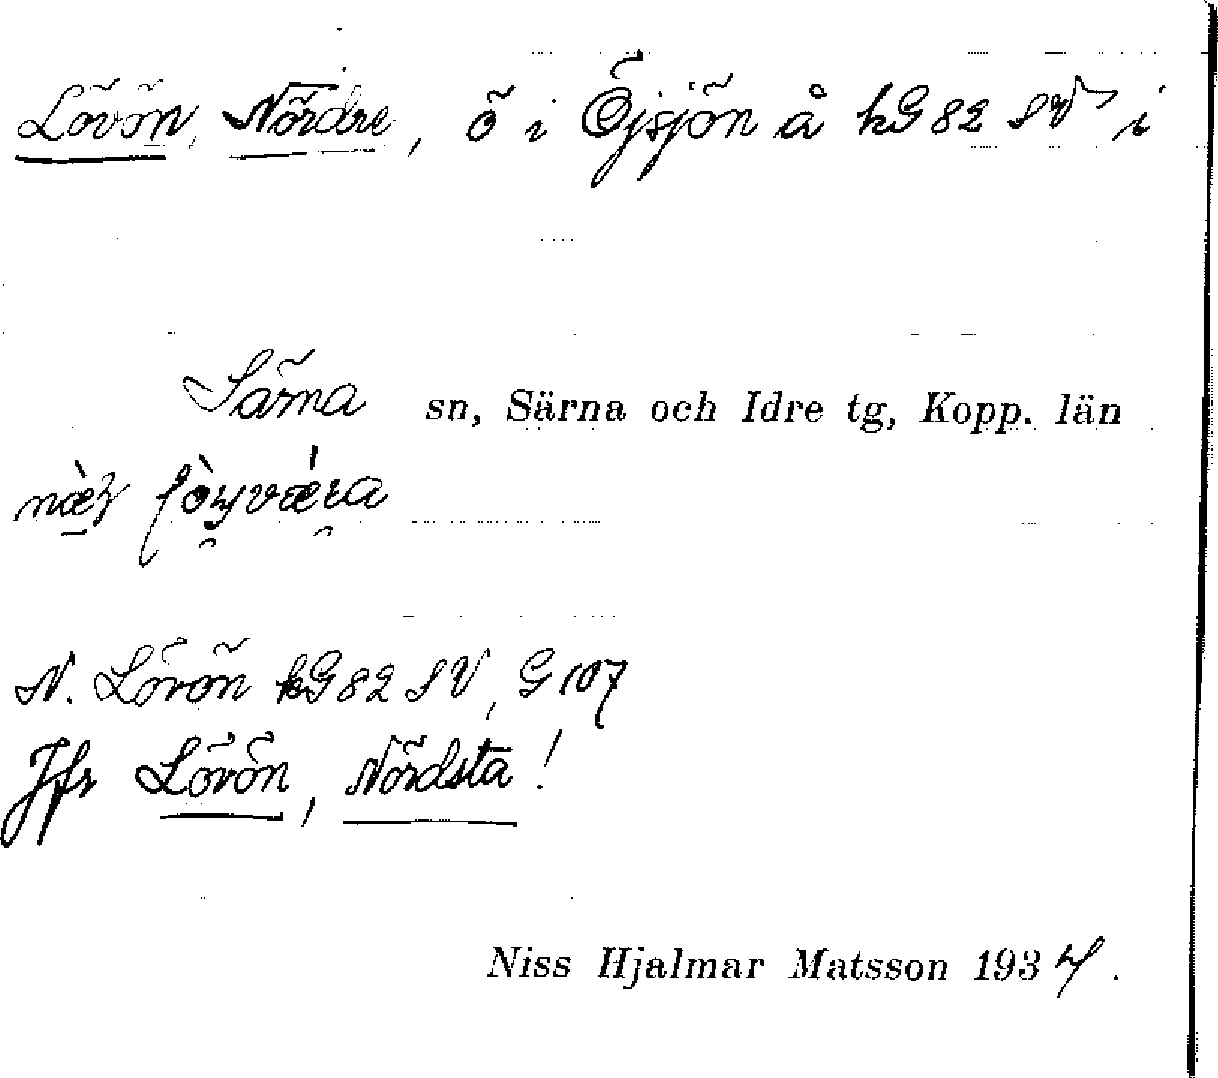 Lövön, Nördre, ö i Öjsjön å kG 82 SV i
Särna sn, Särna och Idre tg, Kopp. län
N. Lövön kG 82 SV, G 107
Jfr Lövön, Nördsta!
Niss Hjalmar Matsson 1934.